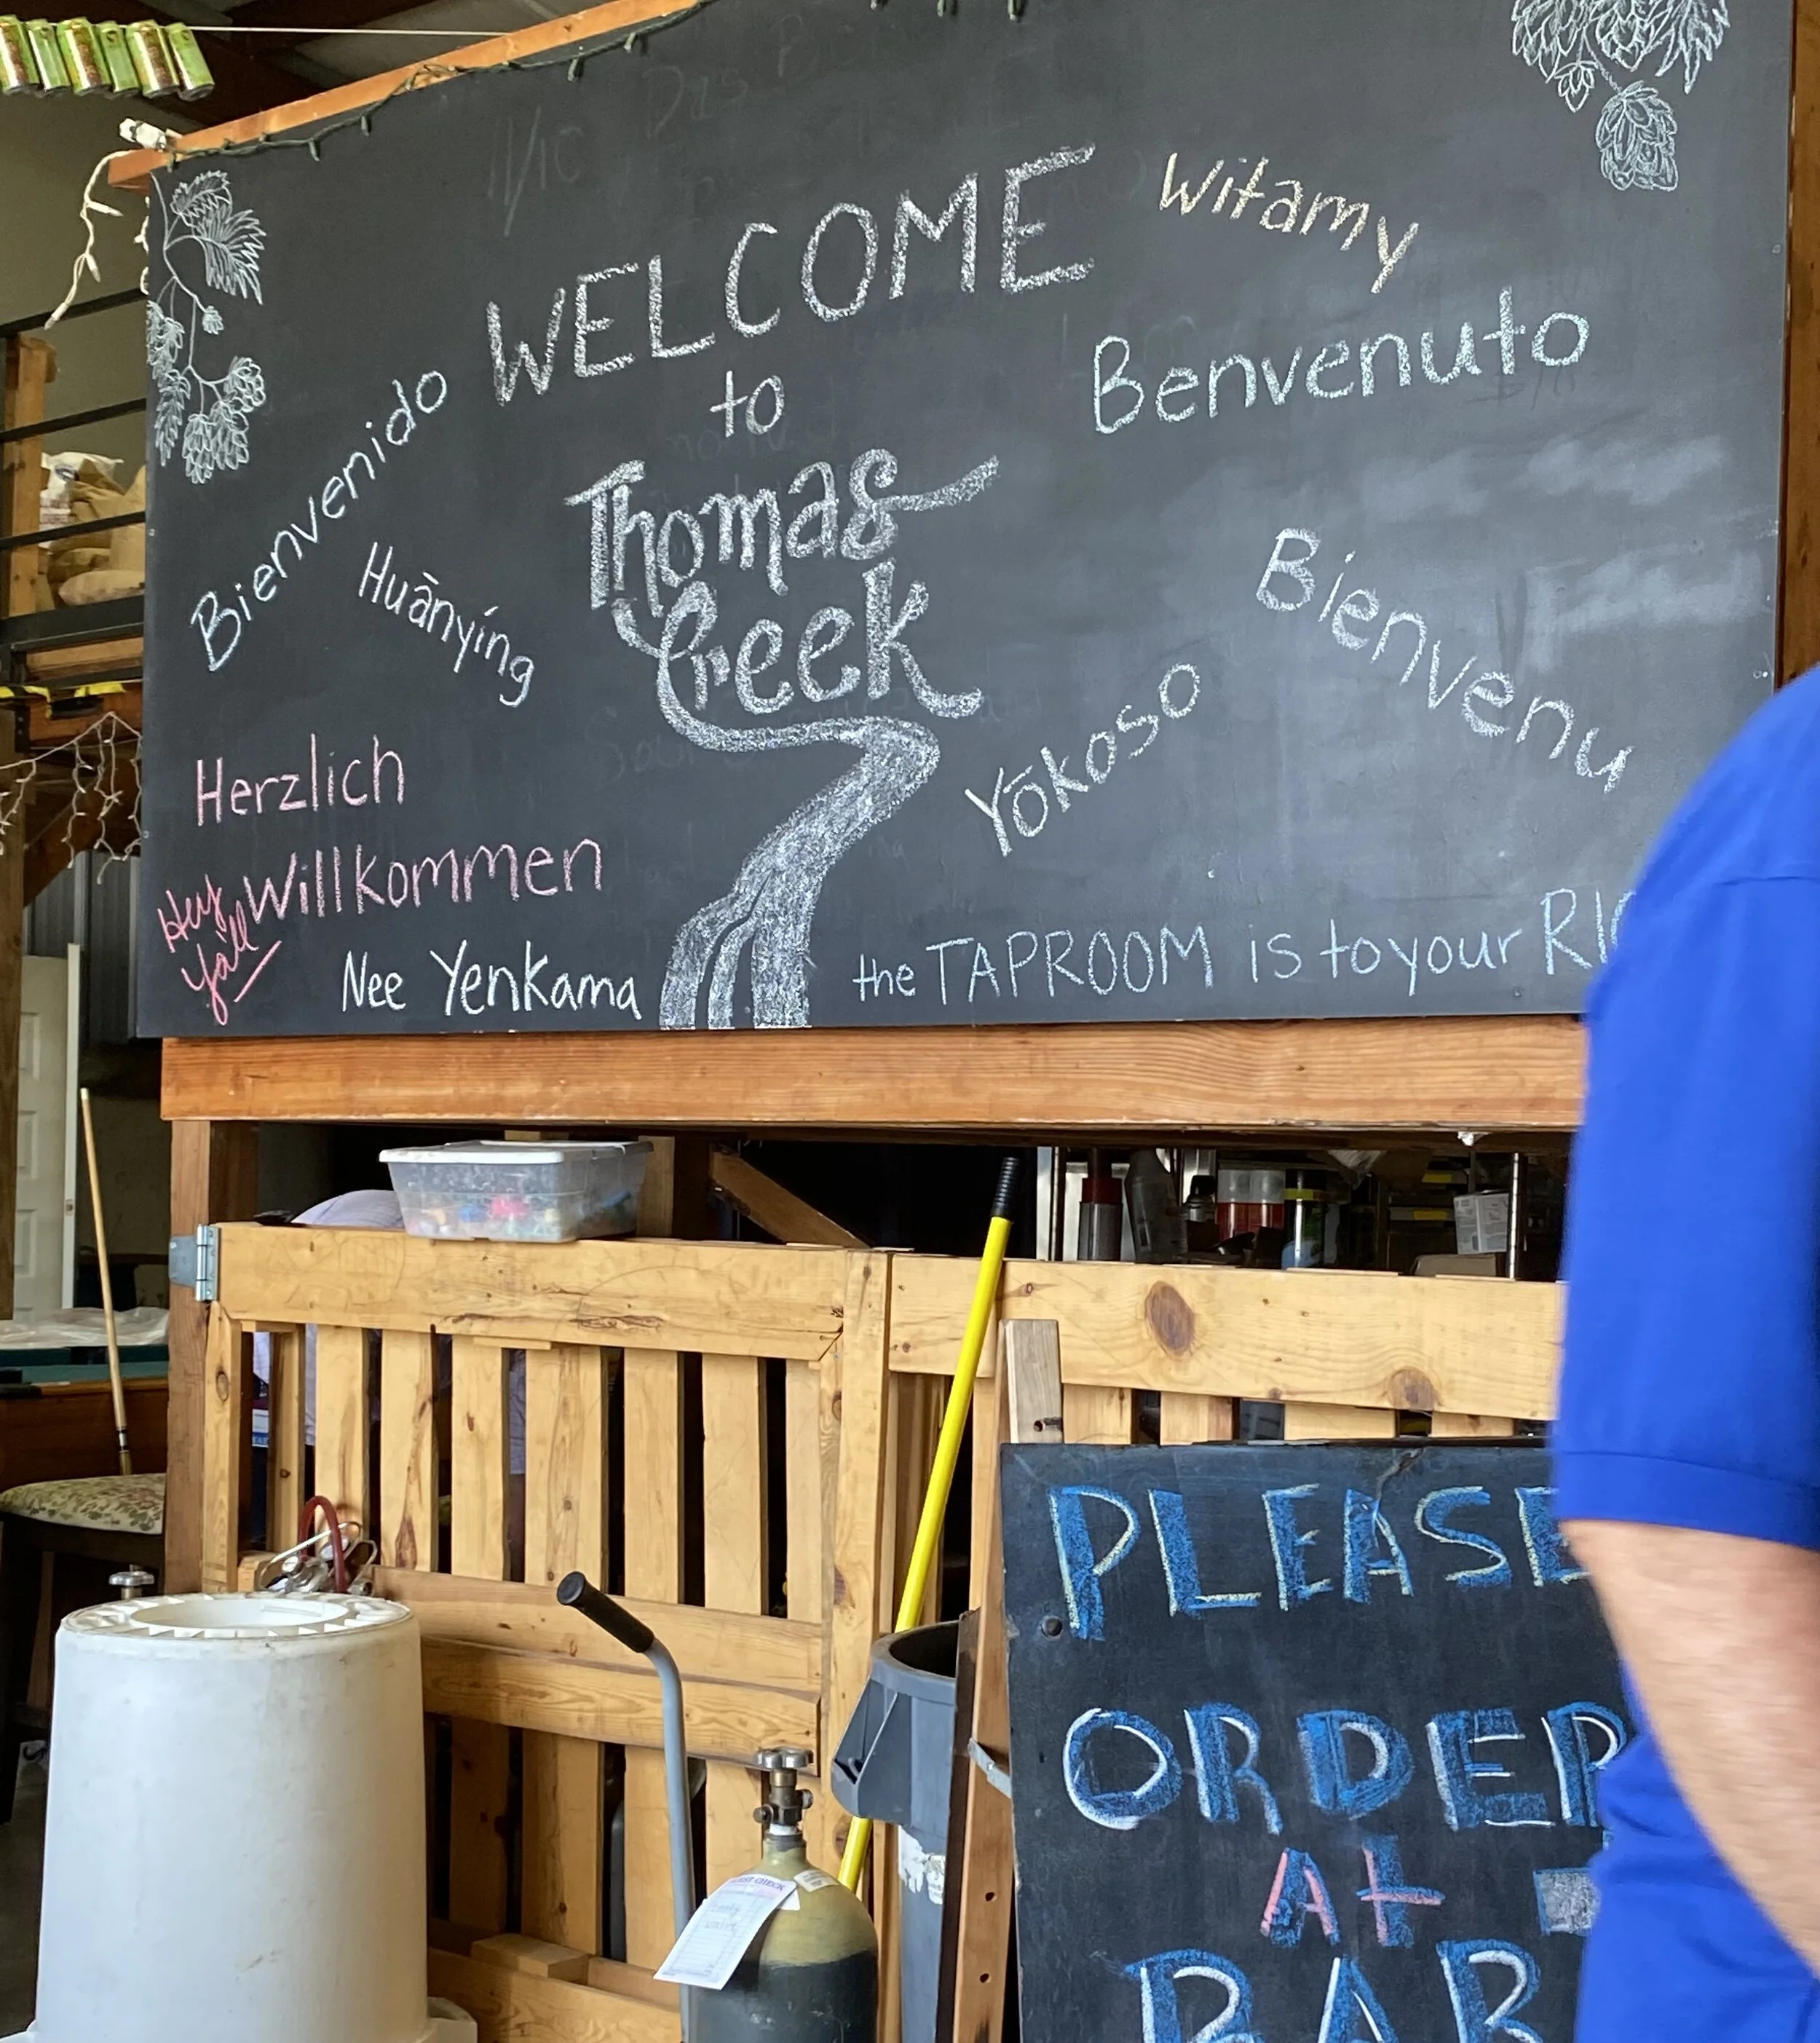 WELCOME
to
Thomas
Creek
Witamy
Benvenuto
Bienvenido
Huānyíng
Bienvenu
Yōkoso
Herzlich
Willkommen
Hey
Ya'll
Nee Yenkama
the TAPROOM is to your
PLEASE
ORDER
At
BAR